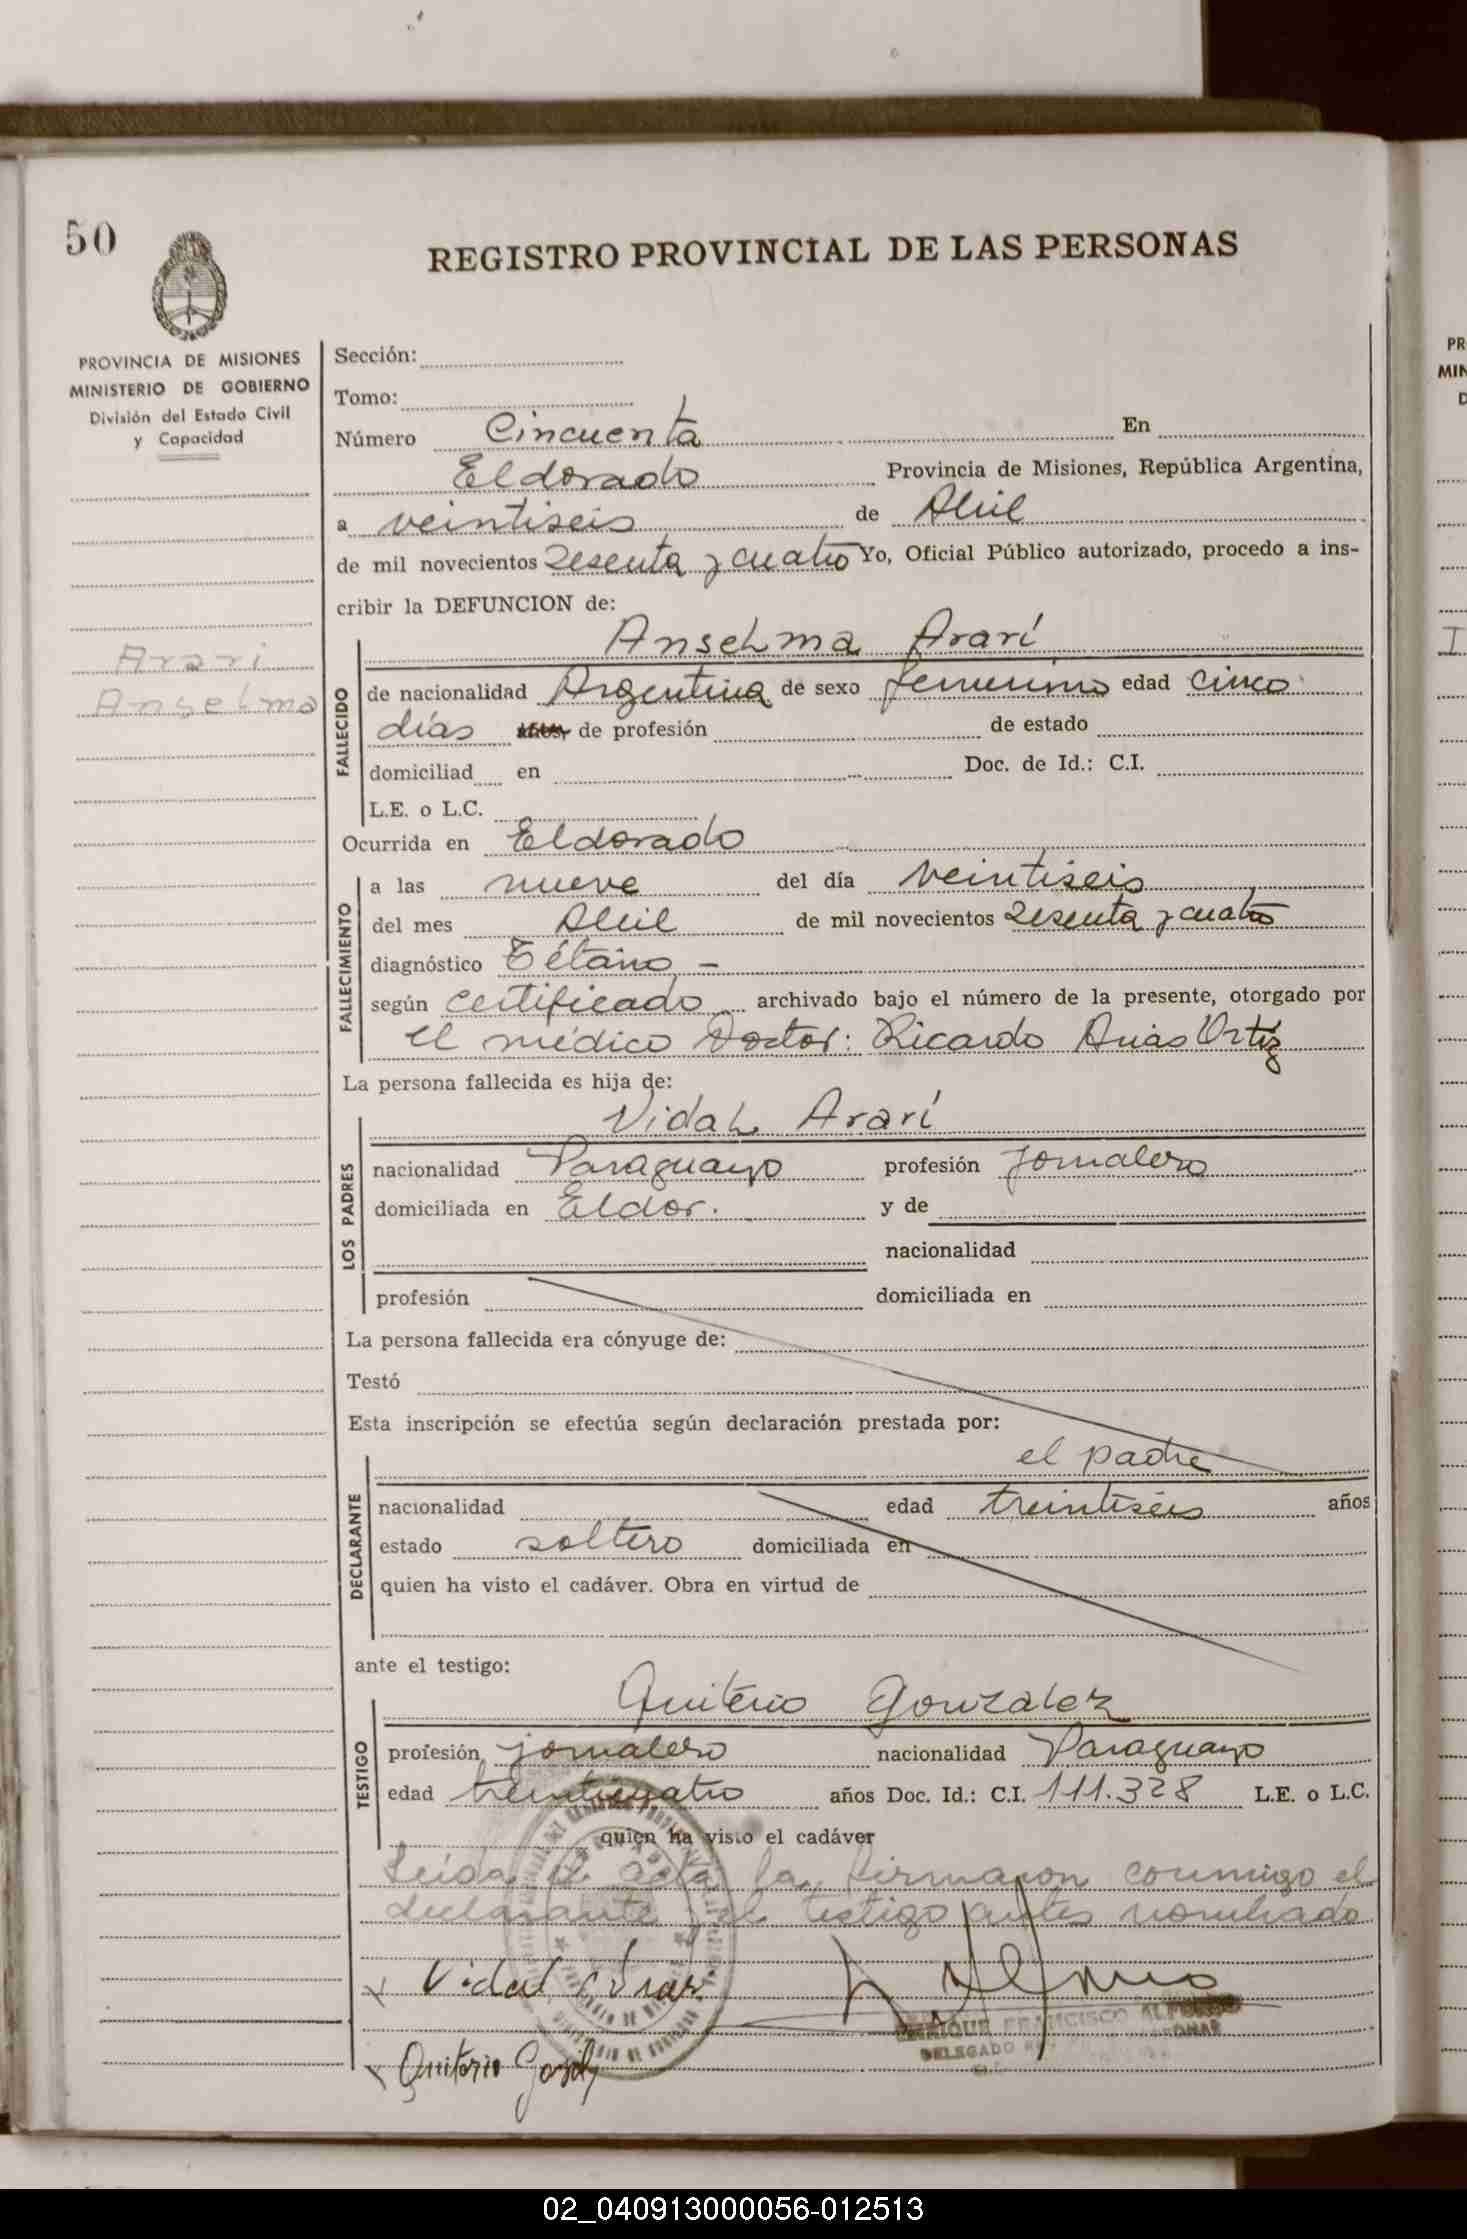 50
REGISTRO PROVINCIAL DE LAS PERSONAS
PROVINCIA DE MISIONES
MINISTERIO DE GOBIERNO
División del Estado Civil
y Capacidad
Arari
Anselma
Sección:
Tomo:
Número Cincuenta En
Eldorado Provincia de Misiones, República Argentina,
a veintiseis de Abril
de mil novecientos sesenta y cuatro Yo, Oficial Público autorizado, procedo a ins-
cribir la DEFUNCION de:
FALLECIDO
Anselma Ararí
de nacionalidad Argentina de sexo femenino edad cinco
días años, de profesión de estado
domiciliad en Doc. de Id.: C.I.
L.E. o L.C.
Ocurrida en Eldorado
FALLECIMIENTO
a las nueve del día veintiseis
del mes Abril de mil novecientos sesenta y cuatro
diagnóstico Tétano -
según certificado archivado bajo el número de la presente, otorgado por
el médico Doctor: Ricardo Arias Ortíz
La persona fallecida es hija de:
LOS PADRES
Vidal Ararí
nacionalidad Paraguayo profesión jornalero
domiciliada en Eldor. y de
nacionalidad
profesión domiciliada en
La persona fallecida era cónyuge de:
Testó
Esta inscripción se efectúa según declaración prestada por:
DECLARANTE
el padre
nacionalidad edad treintiséis años
estado soltero domiciliada en
quien ha visto el cadáver. Obra en virtud de
ante el testigo:
TESTIGO
Quiterio Gonzalez
profesión jornalero nacionalidad Paraguayo
edad treinticuatro años Doc. Id.: C.I. 111.328 L.E. o L.C.
quien ha visto el cadáver
Leida el acta la firmaron conmigo el
declarante y el testigo antes nombrado
Vidal
ENRIQUE FRANCISCO ALFONSO
DELEGADO
Quiterio
02_040913000056-012513